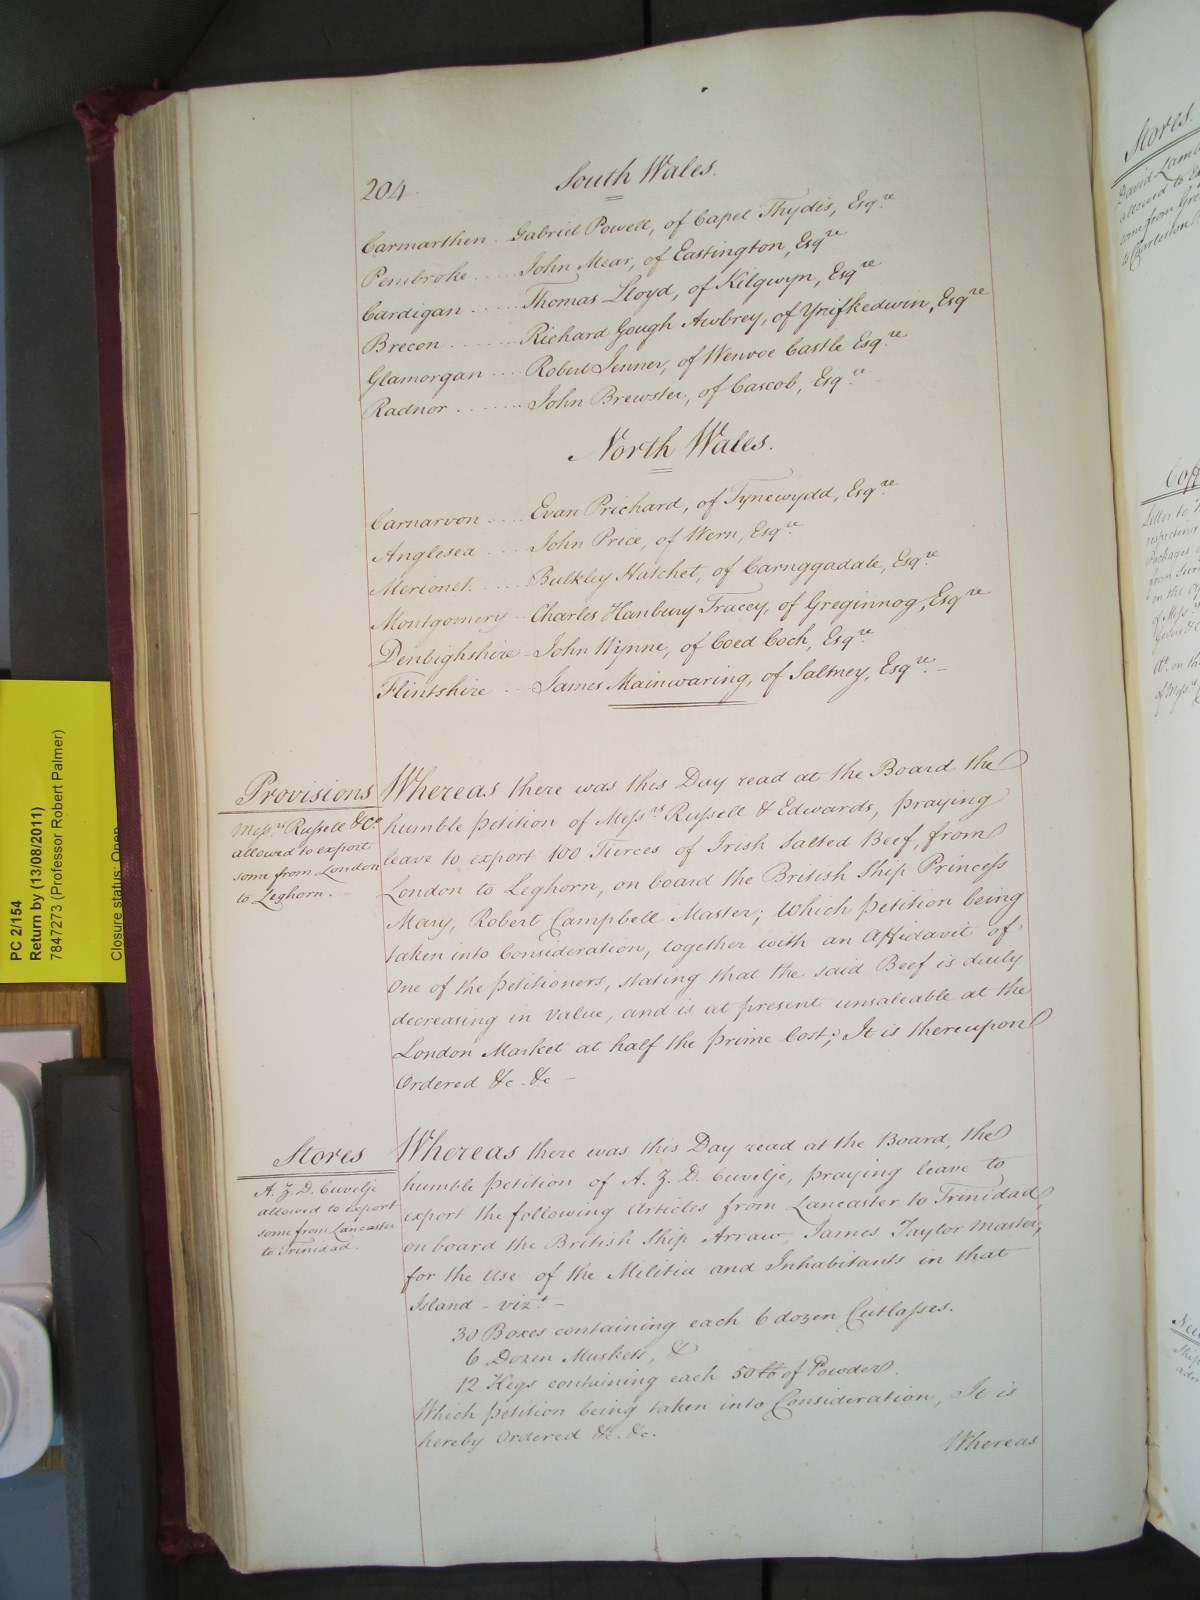 204
South Wales.
Carmarthen Gabriel Powell, of Capel Thydis, Esqre
Pembroke John Mear, of Eastington, Esqre
Cardigan Thomas Lloyd, of Kilgwyn, Esqre
Brecon Richard Gough Awbrey, of Ynifkedwin, Esqre
Glamorgan Robert Jenner, of Wenvoe Castle Esqre
Radnor John Brewster, of Cascob, Esqre
North Wales.
Carnarvon Evan Prichard, of Tynewydd, Esqre
Anglesea John Price, of Wern, Esqre
Merionet. Bulkley Hatchet, of Carnggadale, Esqre
Montgomery Charles Hanbury Tracey, of Greginnog, Esqre
Denbighshire John Wynne, of Coed Coch, Esqre
Flintshire James Mainwaring, of Saltney, Esqre
Provisions
Messrs Russell & Co
allowed to export
some from London
to Leghorn.
Whereas there was this Day read at the Board the
humble Petition of Messrs Russell & Edwards, praying
leave to export 100 Tierces of Irish Salted Beef, from
London to Leghorn, on board the British Ship Princess
Mary, Robert Campbell Master; Which Petition being
taken into Consideration, together with an Affidavit of
One of the Petitioners, stating that the said Beef is daily
decreasing in Value, and is at present unsaleable at the
London Market at half the prime Cost; It is thereupon
Ordered &c. &c -
Stores
A. Z. D. Cuvelje
allowed to export
some from Lancaster
to Trinidad.
Whereas there was this Day read at the Board, the
humble Petition of A. Z. D. Cuvelje, praying leave to
export the following Articles from Lancaster to Trinidad,
on board the British Ship Arraw, James Taylor Master,
for the Use of the Militia and Inhabitants in that
Island - vizt -
30 Boxes containing each 6 dozen Cutlasses.
6 Dozen Muskets, &
12 Kegs containing each 50 lb of Powder.
Which Petition being taken into Consideration, It is
hereby Ordered &c. &c.
Whereas
PC 2/154
Return by (13/08/2011)
7847273 (Professor Robert Palmer)
Closure status: Open
Stores.
David Lamb
allowed to
some from
to Charleston
Letter to
respecting
Packages
from
on the
of Messrs